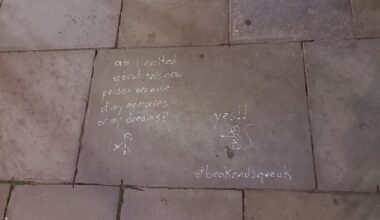 am i excited
about this new
person because
of my memories
or my dreams?
yes!!
@beakandsqueak